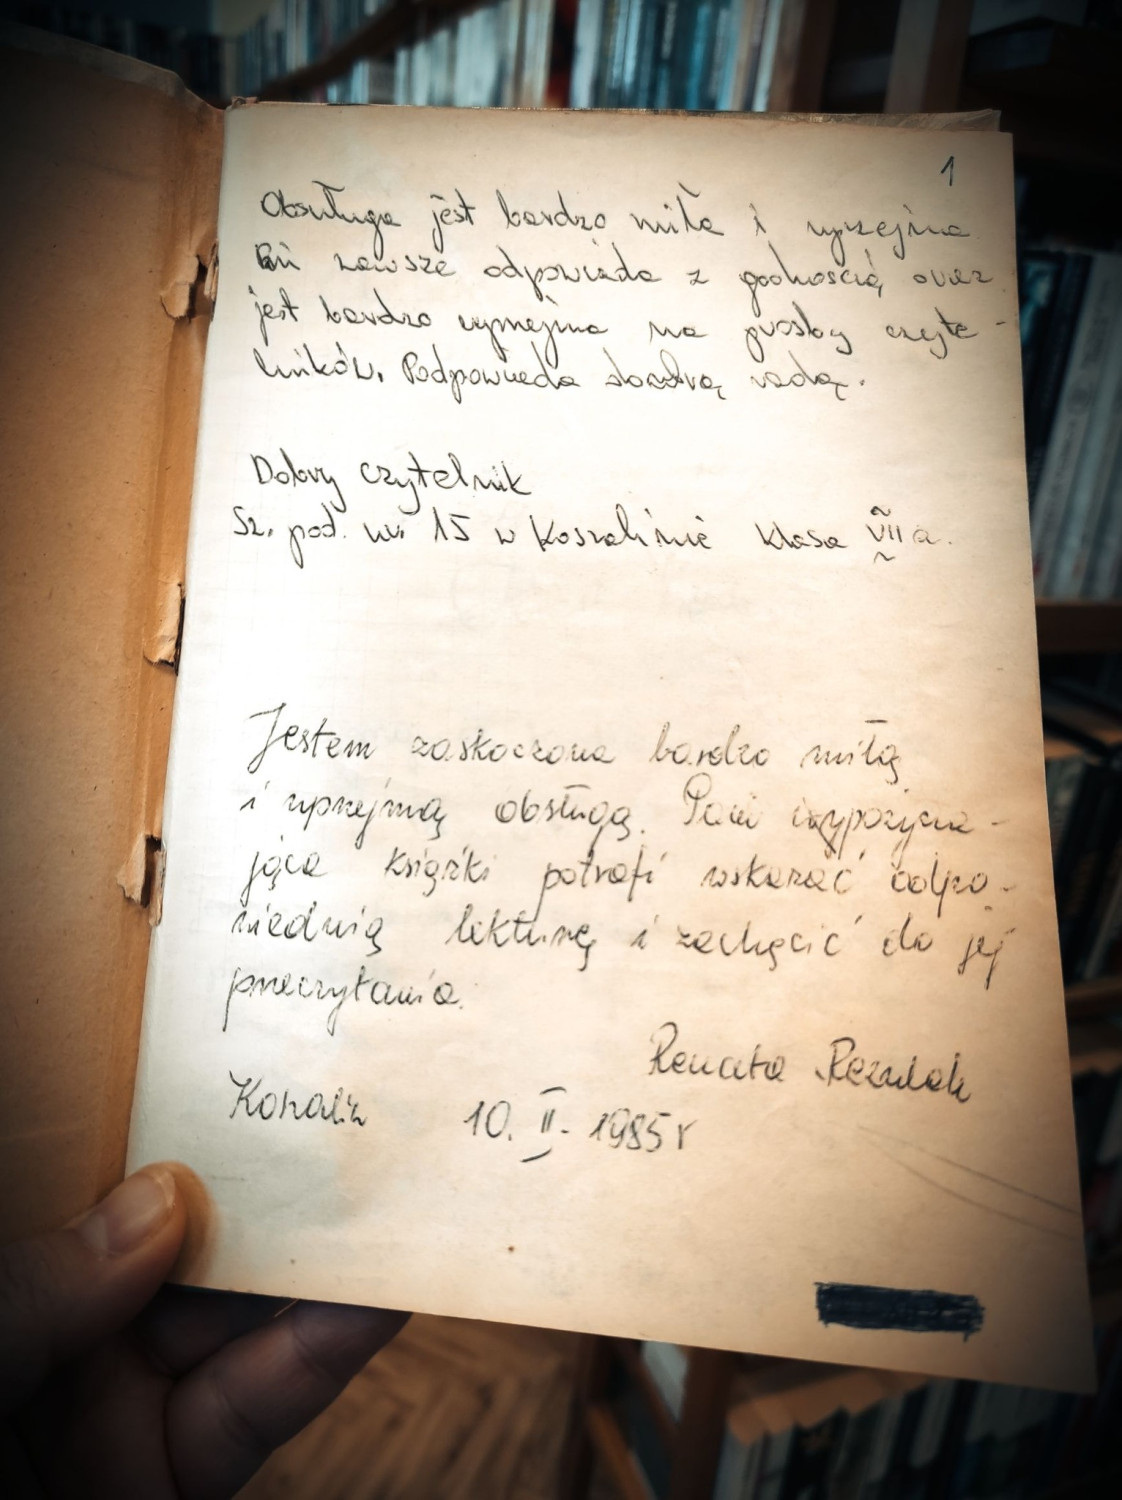 1
Obsługa jest bardzo miła i uprzejma
zawsze odpowiada z godnością oraz
jest bardzo uprzejma na prośby czyte-
lników. Podpowieda dobrą radą.
Dobry czytelnik
Sz. pod. nr. 15 w Koszalinie klasa VII a.
Jestem zaskoczona bardzo miłą
i uprzejmą obsługą. Pani wypożycza-
jąca książki potrafi wskazać odpo-
wiednią lekturę i zachęcić do jej
przeczytania.
Renata
Koszalin 10. II. 1985 r